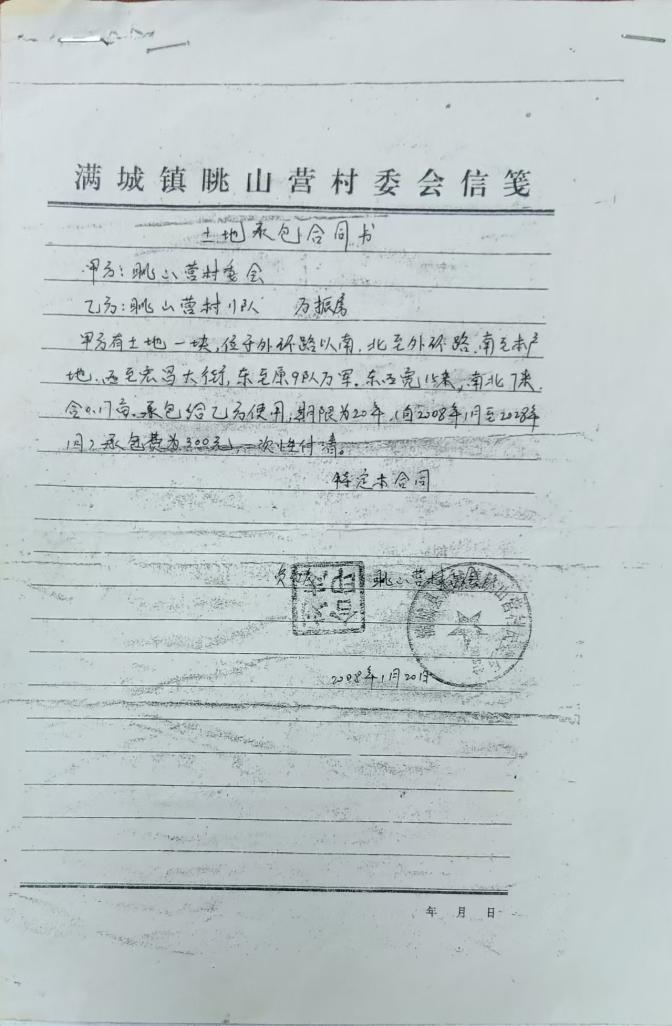 满城镇眺山营村委会信笺
土地承包合同书
甲方：眺山营村委会
乙方：眺山营村11队 万振
甲方有土地一块，位于外环路以南，北至外环路，南至本户
地，西至宏昌大街，东至原9队万军，东西宽15米，南北7米，
合0.17亩，承包给乙方使用，期限为20年，（自2008年1月至2028年
1月）承包费为300元，一次性付清。
特定本合同
眺山营村
2008年1月20日
年 月 日